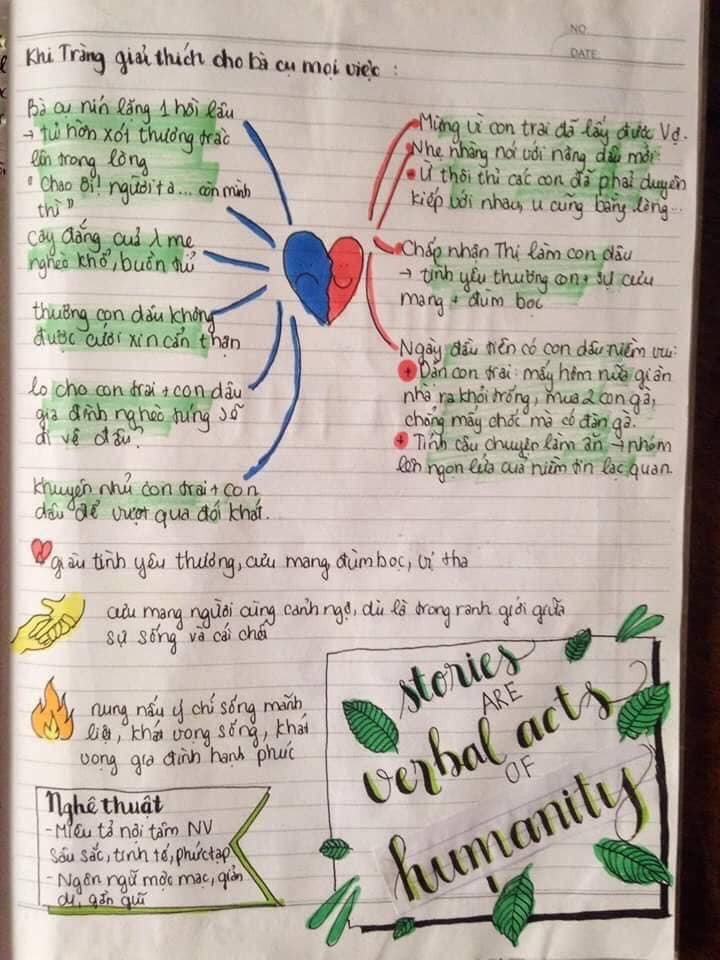 NO
DATE
Khi Tràng giải thích cho bà cụ mọi việc :
Bà cụ nín lặng 1 hồi lâu
→ tủi hờn xót thương trào
lên trong lòng
"Chao ôi! người ta ... còn mình
thì"
Cay đắng của 1 mẹ
nghèo khổ, buồn tủi
thương con dâu không
được cưới xin cẩn thận
lo cho con trai + con dâu
gia đình nghèo túng sẽ
đi về đâu?
khuyên nhủ con trai + con
dâu để vượt qua đói khát.
Mừng vì con trai đã lấy được Vợ.
Nhẹ nhàng nói với nàng dâu mới:
Ừ thôi thì các con đã phải duyên
kiếp với nhau, u cũng bằng lòng...
Chấp nhận Thị làm con dâu
→ tình yêu thương con + sự cưu
mang + đùm bọc
Ngày đầu tiên có con dâu niềm vui:
+ Dặn con trai: mấy hôm nữa gian
nhà ra khỏi trống, mua 2 con gà,
chẳng mấy chốc mà có đàn gà.
+ Tính câu chuyện làm ăn → nhóm
lên ngọn lửa của niềm tin lạc quan.
giàu tình yêu thương, cưu mang, đùm bọc, vị tha
cưu mang người cùng cảnh ngộ, dù là trong ranh giới giữa
sự sống và cái chết
nung nấu ý chí sống mãnh
liệt, khát vọng sống, khát
vọng gia đình hạnh phúc
Nghệ thuật
- Miêu tả nội tâm NV
sâu sắc, tinh tế, phức tạp
- Ngôn ngữ mộc mạc, giản
dị, gần gũi
stories
ARE
verbal acts
OF
humanity